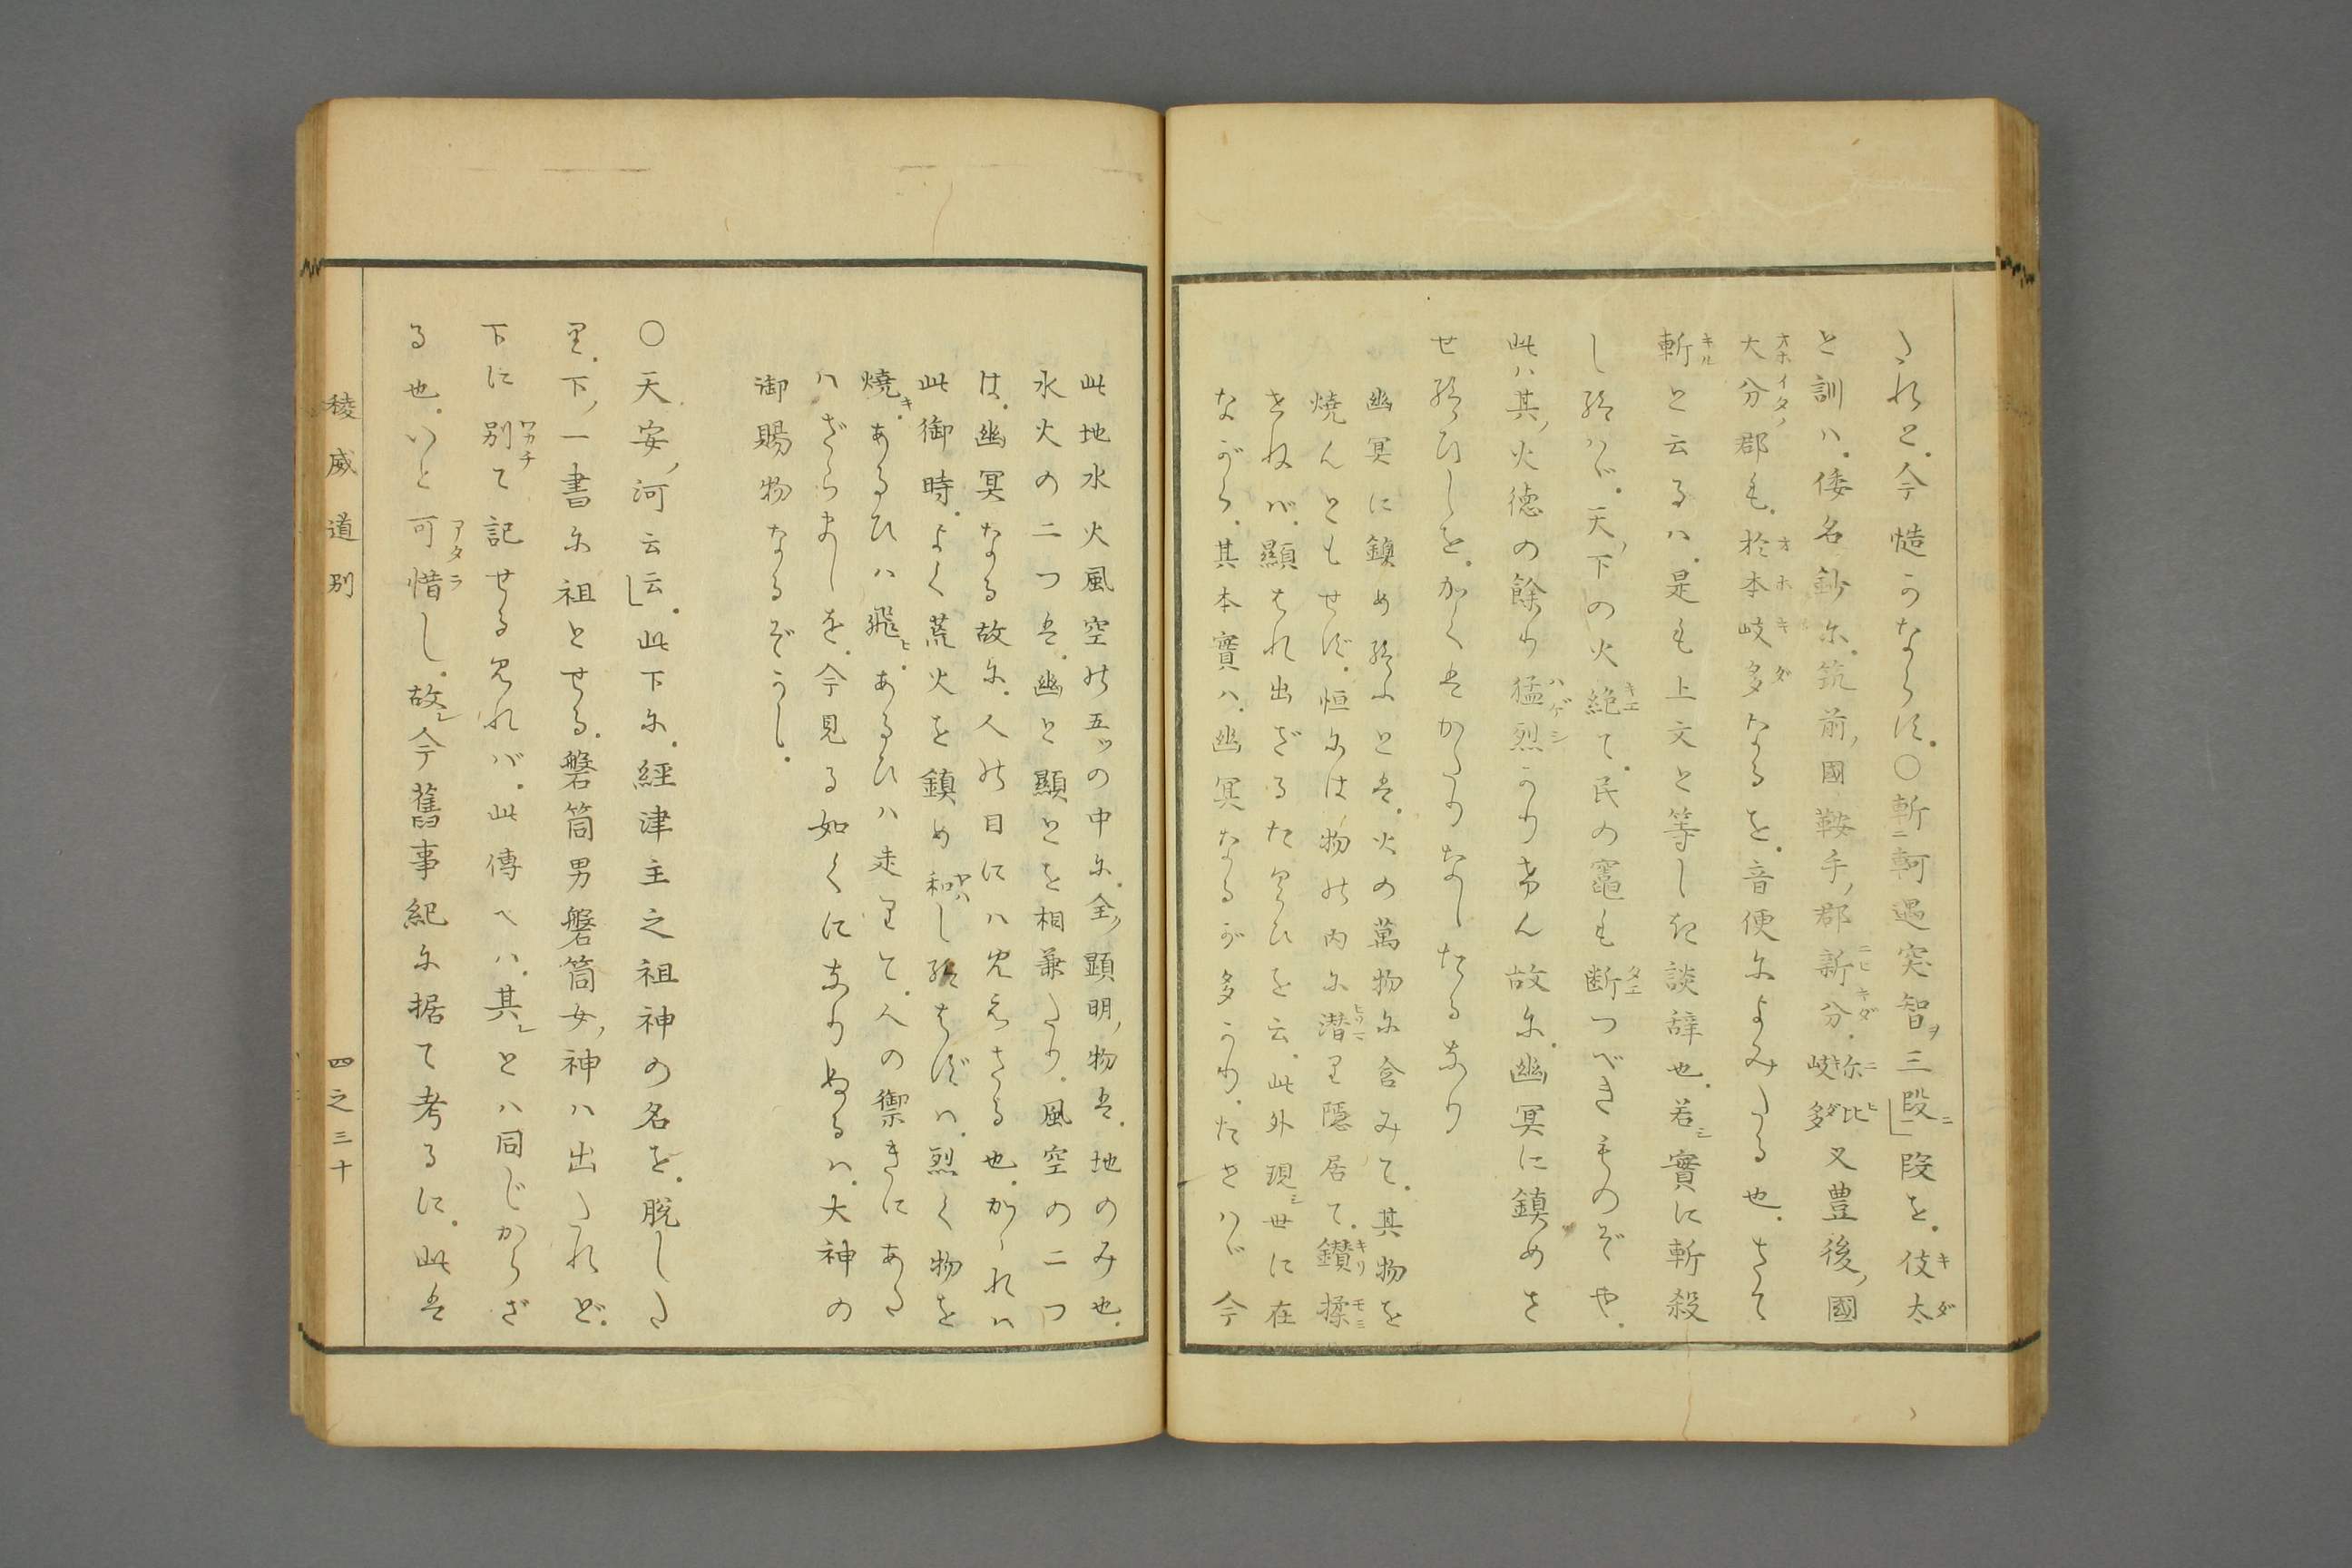 れと。今慥うならず。〇斬軻遇突智三段段を。伎太
と訓ハ。倭名鈔尓。筑前國鞍手郡新分。尓比岐多又豊後國
大分郡も。於本岐多なるを。音便尓よみたる也。さて
斬と云るハ。是も上文と等しき談辞也。若實に斬殺
し給ハゞ。天下の火絶て。民の竈も断つべきものぞや。
此ハ其火徳の餘り猛烈うりけん故尓。幽冥に鎮めさ
せ給ひしを。かくはかたりなしたるなり
幽冥に鎮め給ふとは。火の萬物尓含みて。其物を
焼んともせず。恒尓は物の内尓潜り隠居て。鑚揉
さねば。顯はれ出ざるたぐひを云。此外現世に在
ながら。其本實ハ。幽冥なるが多うり。たとハゞ今
此地水火風空の五ツの中尓。全顕明物は。地のみ也。
水火の二つは。幽と顯とを相兼たり。風空の二つ
は。幽冥なる故尓。人の目にハ見えざる也。かゝれハ
此御時。よく荒火を鎮め和し給はずハ。烈く物を
焼。あるひハ飛。あるひハ走りて。人の禦きにあた
ハざらましを。今見る如くになりぬるハ。大神の
御賜物なるぞうし。
〇天安河云云。此下尓。經津主之祖神の名を。脱した
り。下一書尓祖とせる。磐筒男磐筒女神ハ出たれど。
下に別て記せる見れバ。此傳へハ。其とハ同じからざ
る也。いと可惜し。故今舊事紀尓据て考るに。此は
稜威道別
四之三十